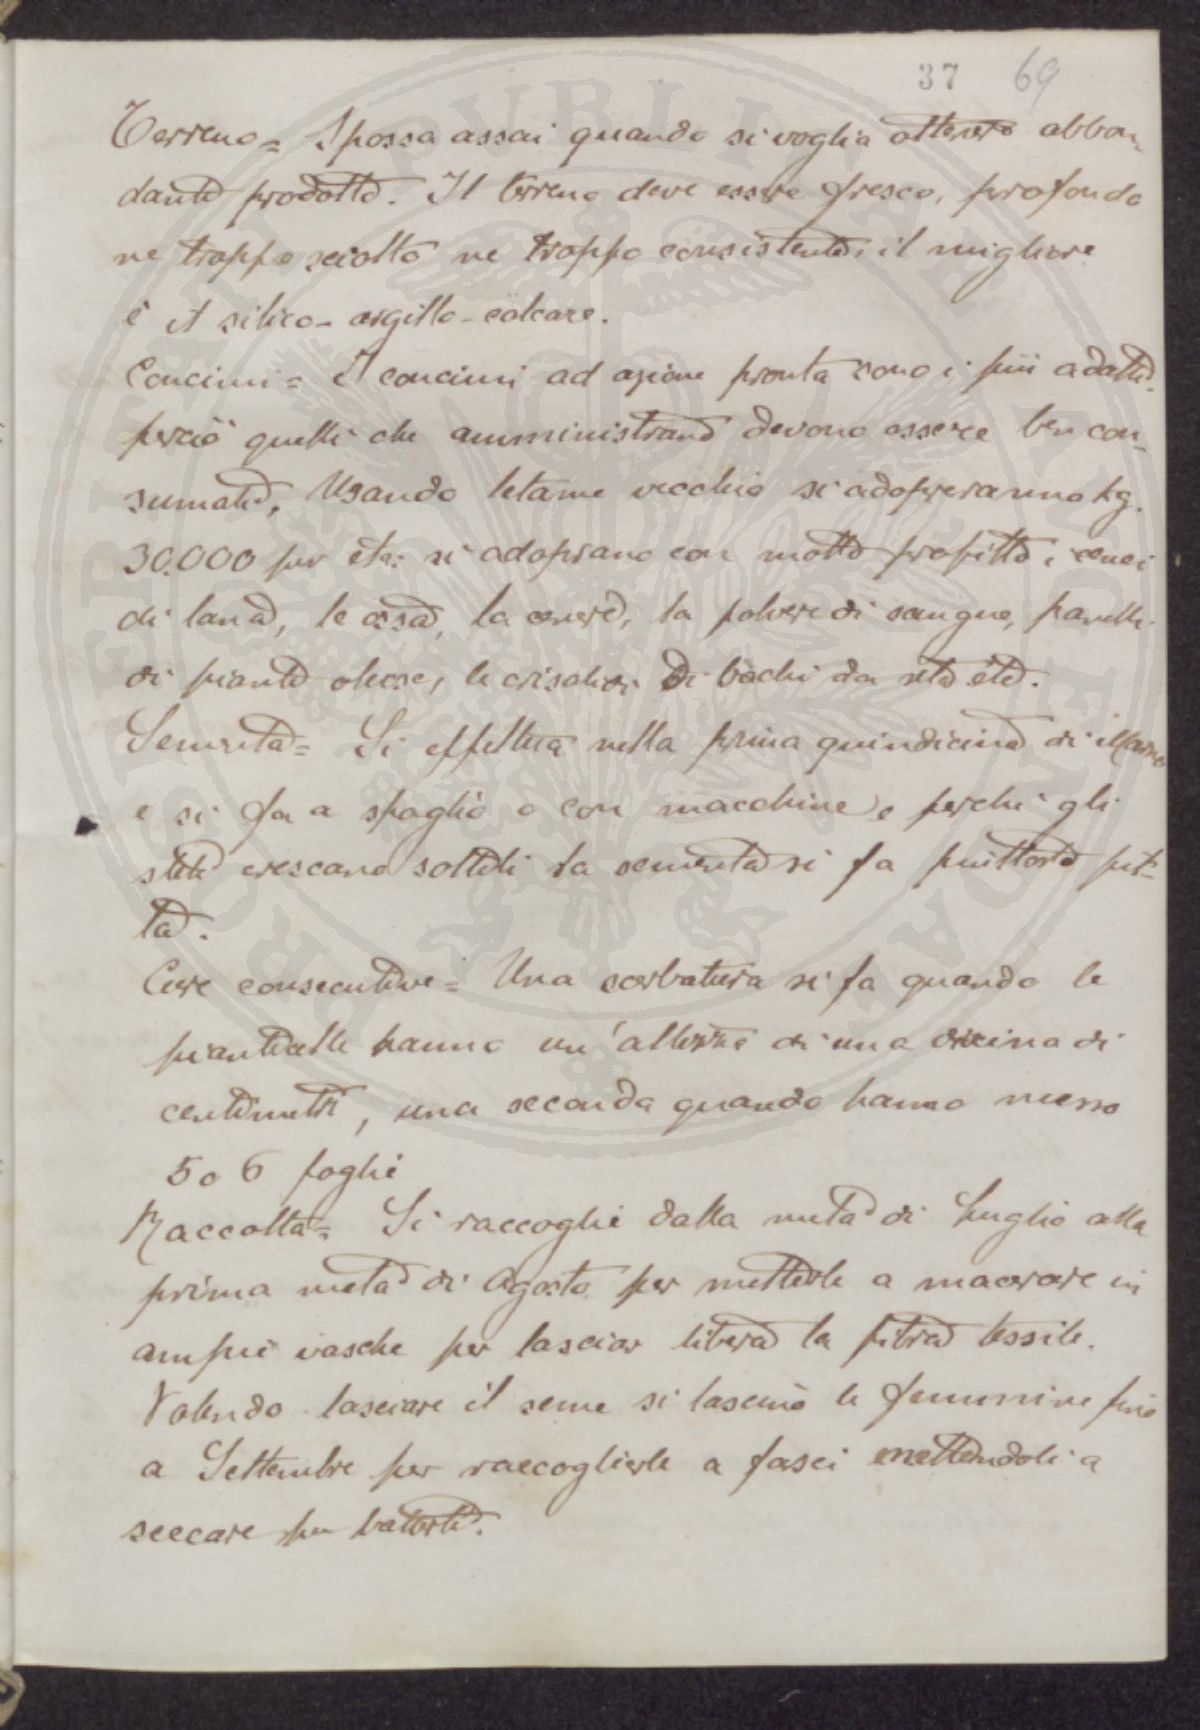 37 69
Terreno = Spossa assai quando si voglia ottenere abbon-
dante prodotto. Il terreno deve essere fresco, profondo
ne troppo sciolto ne troppo consistente, il migliore
è il silico-argillo-calcare.
Concimi = I concimi ad azione pronta sono i più adatti.
perciò quelli che amministrano devono essere ben con-
sumati. Usando letame vecchio si adopreranno kg.
30.000 per éta: si adoprano con molto profitto i cenci
di lana, le ossa, la cenere, la polvere di sangue, panelli
di piante oleose, le crisalidi di bachi da seta ete.
Sementa = Si effettua nella prima quindicina di Marzo
e si fa a spaglio o con macchine e perchè gli
steli crescano sottili la sementa si fa piuttosto fit-
ta.
Cure consecutive = Una sarbatura si fa quando le
pianticelle hanno un'altezza di una decina di
centimetri, una seconda quando hanno messo
5 o 6 foglie
Raccolta = Si raccoglie dalla metà di Luglio alla
prima metà di Agosto per metterle a macerare in
ampie vasche per lasciar libera la fibra tessile.
Volendo lasciare il seme si lasciano le femmine fino
a Settembre per raccoglierle a fasci mettendoli a
seccare per batterli.
PUBLICA AUCTORITATE PROSPERITATI